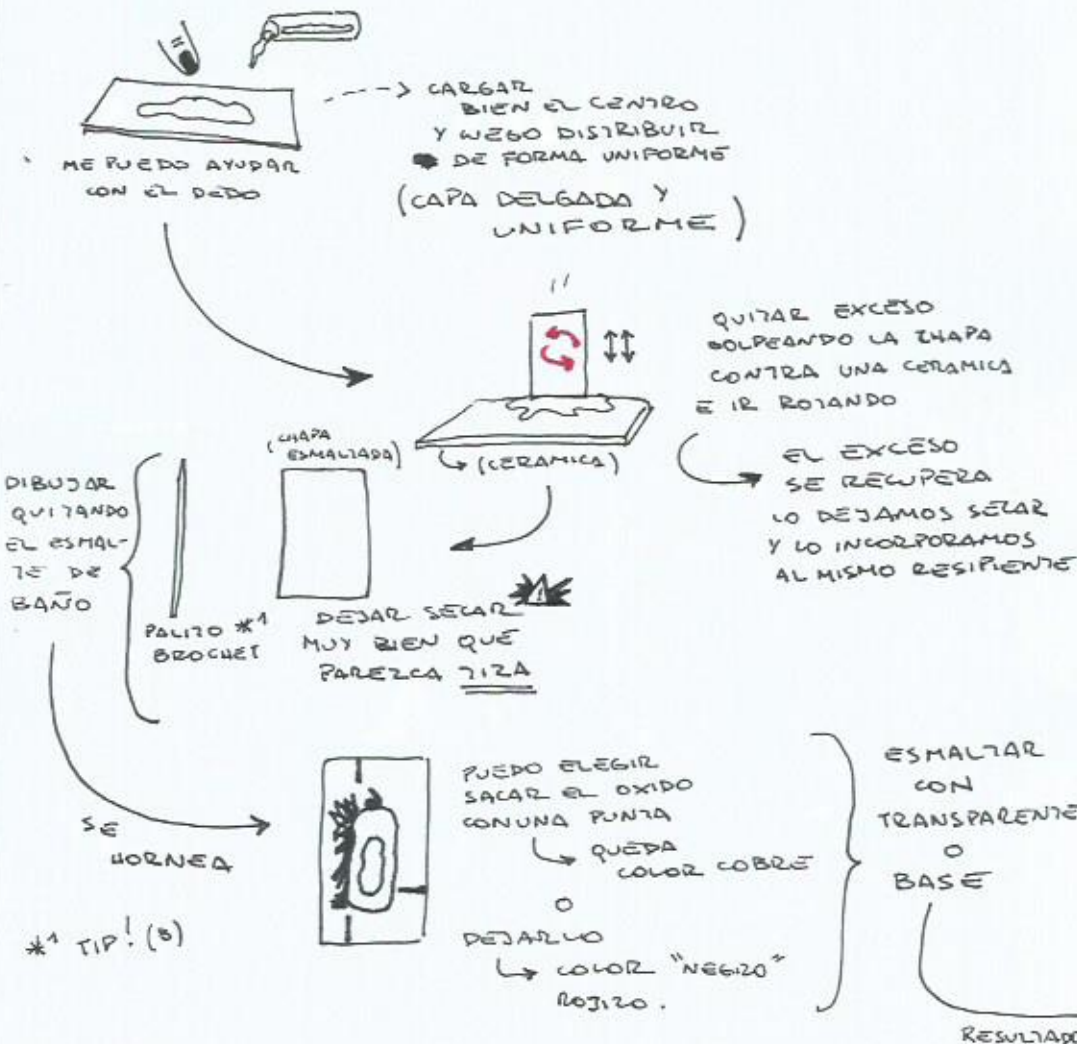 CARGAR
BIEN EL CENTRO
Y LUEGO DISTRIBUIR
DE FORMA UNIFORME
(CAPA DELGADA Y
UNIFORME)
ME PUEDO AYUDAR
CON EL DEDO
QUITAR EXCESO
GOLPEANDO LA CHAPA
CONTRA UNA CERAMICA
E IR ROTANDO
(CERAMICA)
EL EXCESO
SE RECUPERA
LO DEJAMOS SECAR
Y LO INCORPORAMOS
AL MISMO RESIPIENTE
(CHAPA
ESMALTADA)
DIBUJAR
QUITANDO
EL ESMAL-
TE DE
BAÑO
PALITO *1
BROCHET
DEJAR SECAR
MUY BIEN QUE
PAREZCA TIZA
SE
HORNEA
PUEDO ELEGIR
SACAR EL OXIDO
CON UNA PUNTA
QUEDA
COLOR COBRE
O
DEJARLO
COLOR "NEGRO"
ROJIZO.
ESMALTAR
CON
TRANSPARENTE
O
BASE
*1 TIP! (8)
RESULTADO